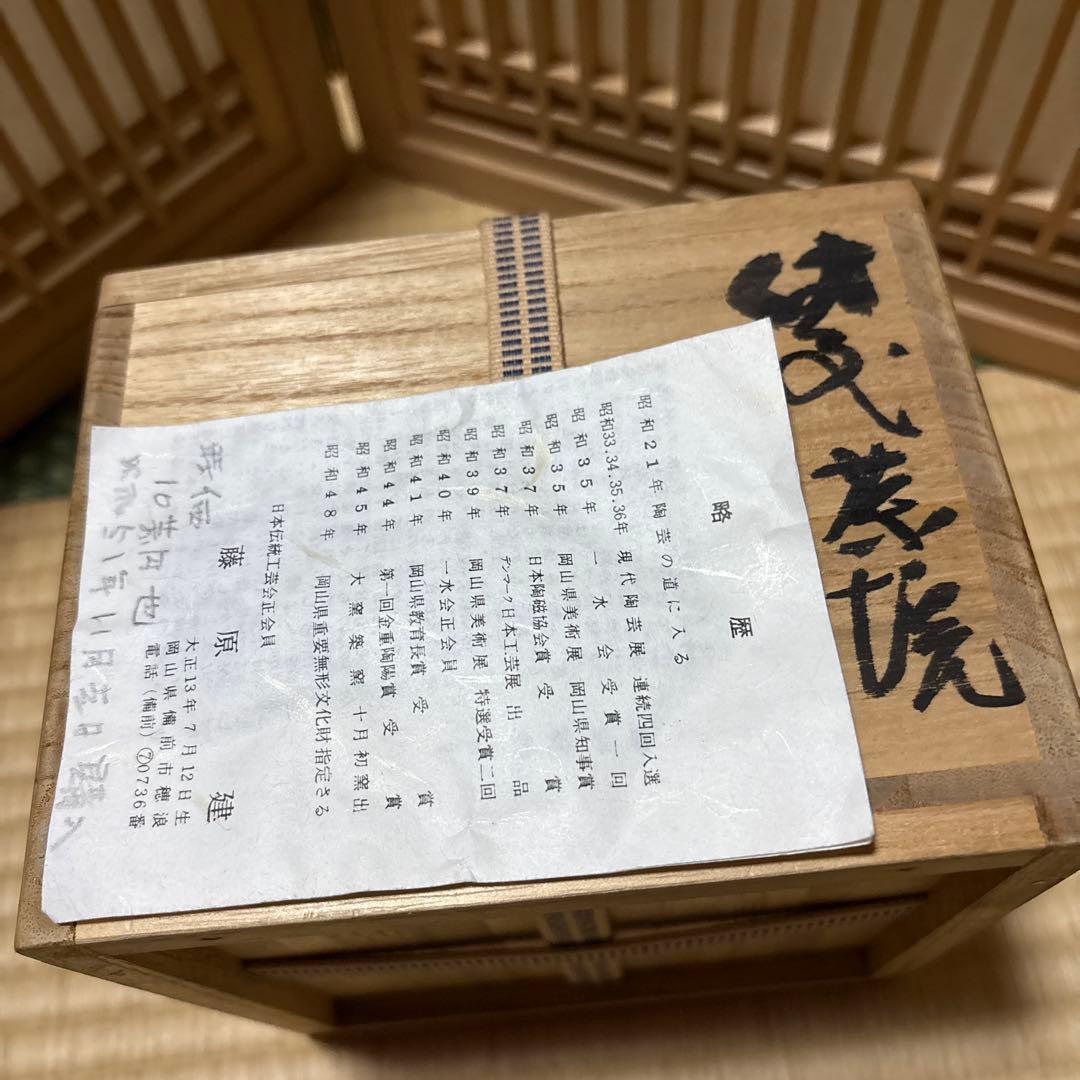 略歴
昭和21年 陶芸の道に入る
昭和33.34.35.36年 現代陶芸展 連続四回入選
昭和35年 一水会受賞一回
昭和35年 岡山県美術展 岡山県知事賞
昭和37年 日本陶磁協会賞受賞
昭和37年 デンマーク日本工芸展出品
昭和39年 岡山県美術展 特選受賞二回
昭和40年 一水会正会員
昭和41年 岡山県教育長賞受賞
昭和44年 第一回金重陶陽賞受賞
昭和45年 大窯築窯 十月初窯出
昭和48年 岡山県重要無形文化財指定さる
日本伝統工芸会正会員
藤原 建
大正13年7月12日生
岡山県備前市穂浪
電話(備前)⑦0736番